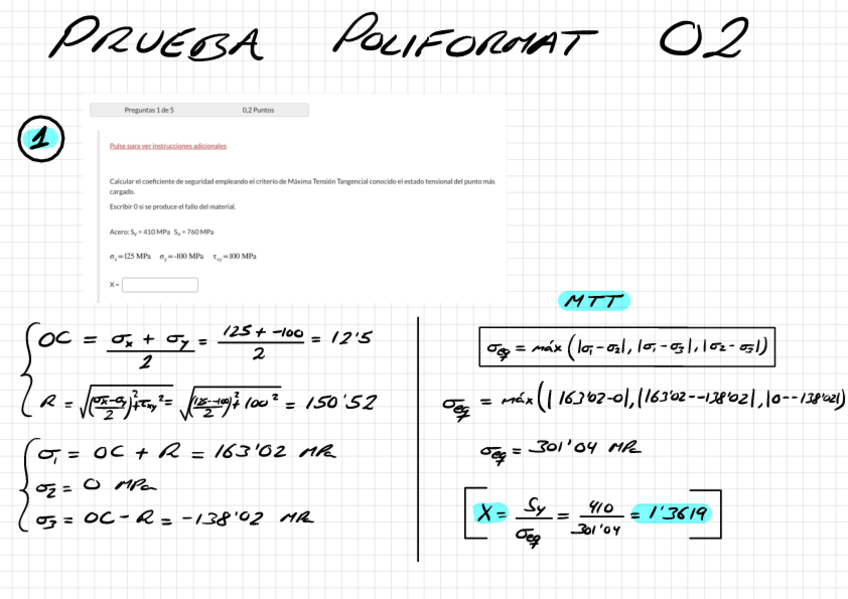 PRUEBA POLIFORMAT 02
1
Preguntas 1 de 5 0,2 Puntos
Pulse para ver instrucciones adicionales
Calcular el coeficiente de seguridad empleando el criterio de Máxima Tensión Tangencial conocido el estado tensional del punto más
cargado.
Escribir 0 si se produce el fallo del material.
Acero: Sy = 410 MPa Su = 760 MPa
σx =125 MPa σy =-100 MPa τxy =100 MPa
X=
OC = (σx + σy)/2 = (125 + -100)/2 = 12'5
R = √(((σx-σy)/2)² + τxy²) = √(((125--100)/2)² + 100²) = 150'52
σ1 = OC + R = 163'02 MPa
σ2 = 0 MPa
σ3 = OC - R = -138'02 MPa
MTT
σeq = máx (|σ1-σ2|, |σ1-σ3|, |σ2-σ3|)
σeq = máx (|163'02-0|, |163'02--138'02|, |0--138'02|)
σeq = 301'04 MPa
X = Sy/σeq = 410/301'04 = 1'3619